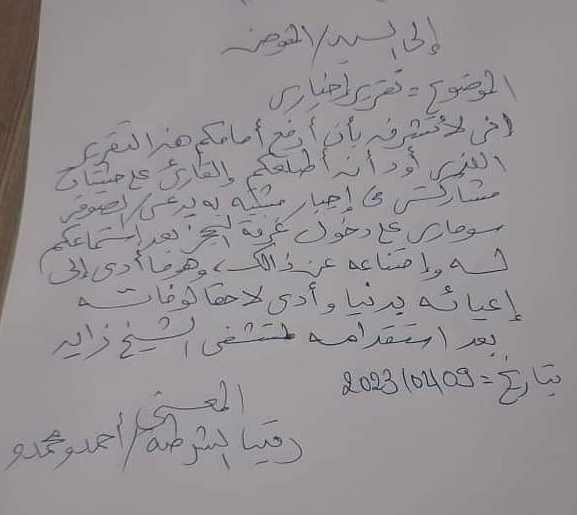 إلى السيد/المفوض
الموضوع = تقرير إخباري
إني لأتشرف بأن أرفع أمامكم هذا التقرير
الذي أود أن أطلعكم والقارئ على حيثيات
مشاركتي في إجبار مشتبه به يدعى/الصوفي
سومارى على دخول غرفة الحجز بعد استماعكم
له وإمتناعه عن ذالك، وهو ما أدى إلى
إعيائه بدنيا وأدى لاحقا لوفاته
بعد استقدامه لمستشفى الشيخ زايد
بتاريخ = 2023/04/09
المعني
رقيب الشرطة/أحمدو محمدو